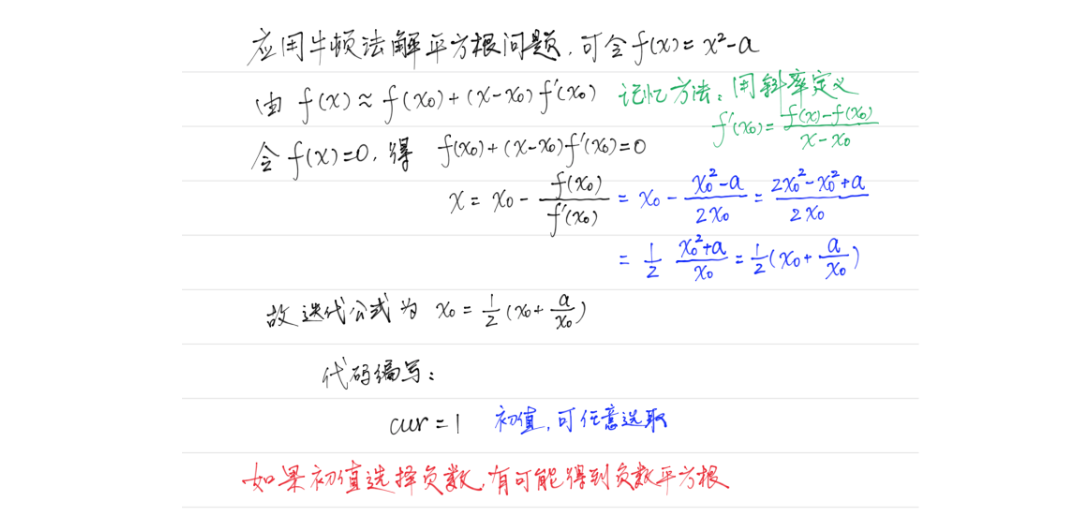 应用牛顿法解平方根问题,可令f(x)=x²-a
由 f(x)≈f(x₀)+(x-x₀)f'(x₀) 记忆方法:用斜率定义
f'(x₀)=\frac{f(x)-f(x₀)}{x-x₀}
令f(x)=0,得 f(x₀)+(x-x₀)f'(x₀)=0
x=x₀-\frac{f(x₀)}{f'(x₀)}=x₀-\frac{x₀²-a}{2x₀}=\frac{2x₀²-x₀²+a}{2x₀}
=\frac{1}{2}\frac{x₀²+a}{x₀}=\frac{1}{2}(x₀+\frac{a}{x₀})
故迭代公式为 x₀=\frac{1}{2}(x₀+\frac{a}{x₀})
代码编写:
cur=1 初值,可任意选取
如果初值选择负数,有可能得到负数平方根